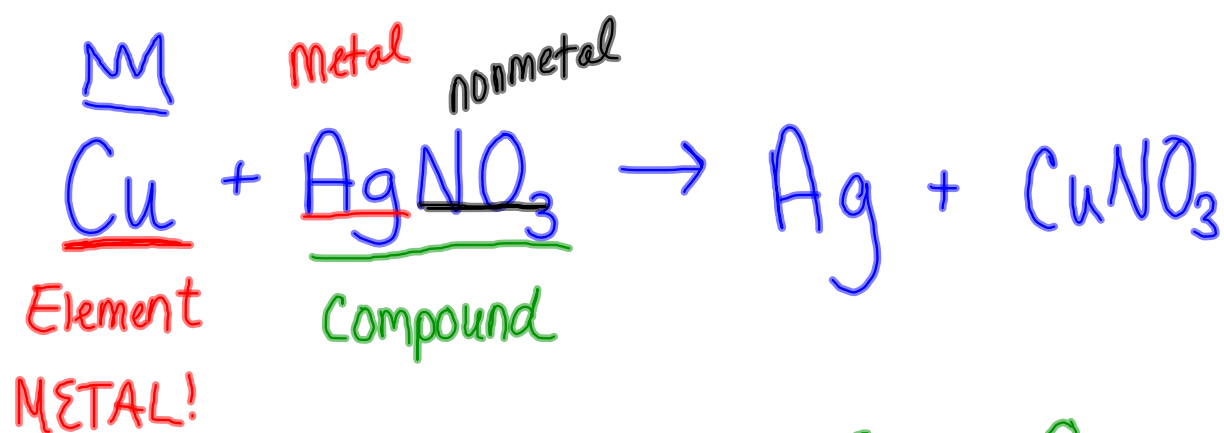 Metal nonmetal
Cu + AgNO₃ → Ag + CuNO₃
Element Compound
METAL!